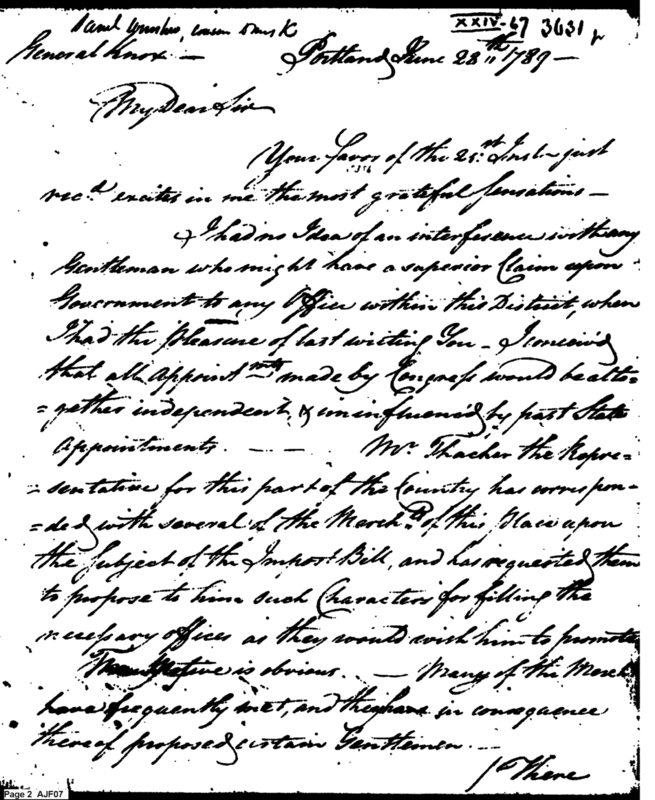 XXIV-67 3631
General Knox — Portland June 28th 1789 —
My Dear Sir
Your favor of the 21st Inst — just
recd excites in me the most grateful sensations —
I had no Idea of an interference with any
Gentleman who might have a superior Claim upon
Government to any Office within this District, when
I had the pleasure of last writing You — I conceived
that all Appointmnts made by Congress would be alto-
=gether independent, & uninfluenc'd by past State
Appointments. — — Mr. Thacher the Repre=
=sentative for this part of the Country has correspon-
=ded with several of the Merchts of this Place upon
the Subject of the Impost Bill, and has requested them
to propose to him such Characters for filling the
necessary offices as they would wish him to promote
is obvious. — Many of the Merch
have frequently met, and they have in consequence
thereof proposed certain Gentlemen. —
There
Page 2 AJF07